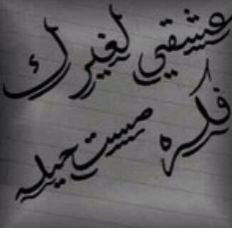 عشقي لغيرك
فكره مستحيله